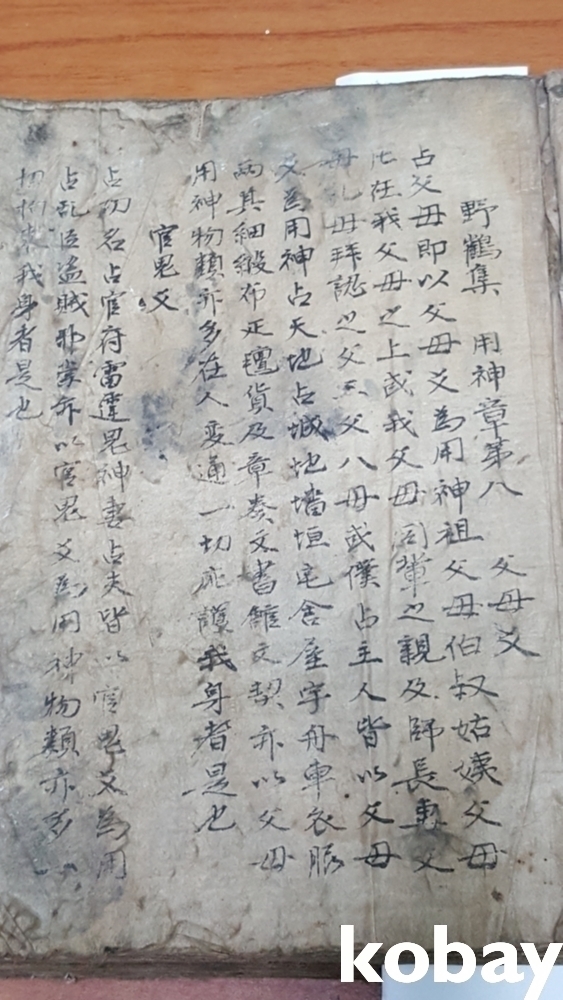 野鶴集 用神章第八 父母爻
占父母即以父母爻為用神祖父母伯叔姑姨父母
在我父母之上或我父母同輩之親及師長妻父
母乳母拜認之父三父八母或僕占主人皆以父母
爻為用神占天地占城池墻垣宅舍屋宇舟車衣服
其細緞布疋貨及章奏文書館文契亦以父母
用神物類亦多在人変通一切庇護我身者是也
官鬼爻
占功名占官府雷霆鬼神妻占夫皆以官鬼爻為用
占乱臣盗賊邪祟亦以官鬼爻為用神物類亦多一
切拘束我身者是也
kobay